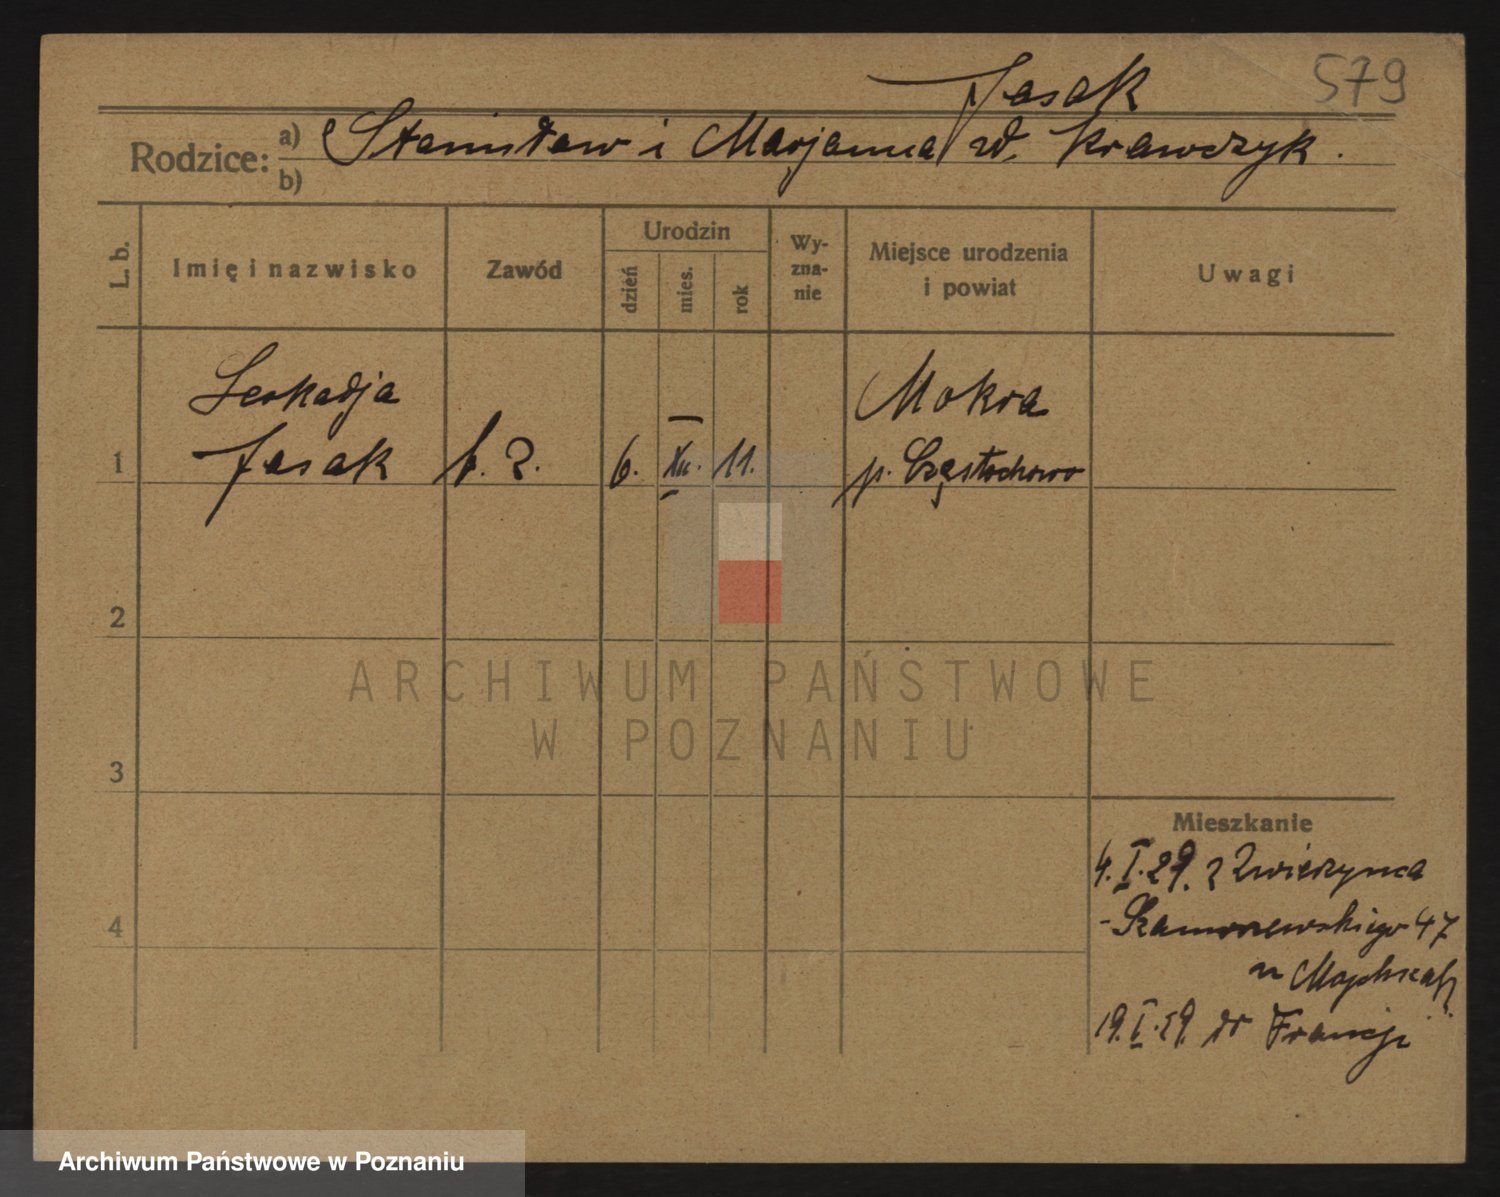 579
Jasak
Rodzice: a) Stanisław i Marjanna zd. Krawczyk.
b)
L. b.
Imię i nazwisko
Zawód
Urodzin
dzień
mies.
rok
Wy-
zna-
nie
Miejsce urodzenia
i powiat
Uwagi
Leokadja
Mokra
1 Jasak b. z. 6. XII. 11. p. Częstochowa
2
ARCHIWUM PAŃSTWOWE
W POZNANIU
3
Mieszkanie
4. I. 29. z Zwierzyńca
4
47
19. I. 29. do Francji
Archiwum Państwowe w Poznaniu